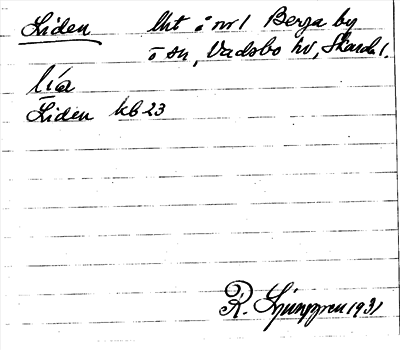 Liden lht å nr 1 Berga by
i sn, Vadsbo hd, Skarab. l.
lía
Liden kb 23
R. Ljunggren 1931